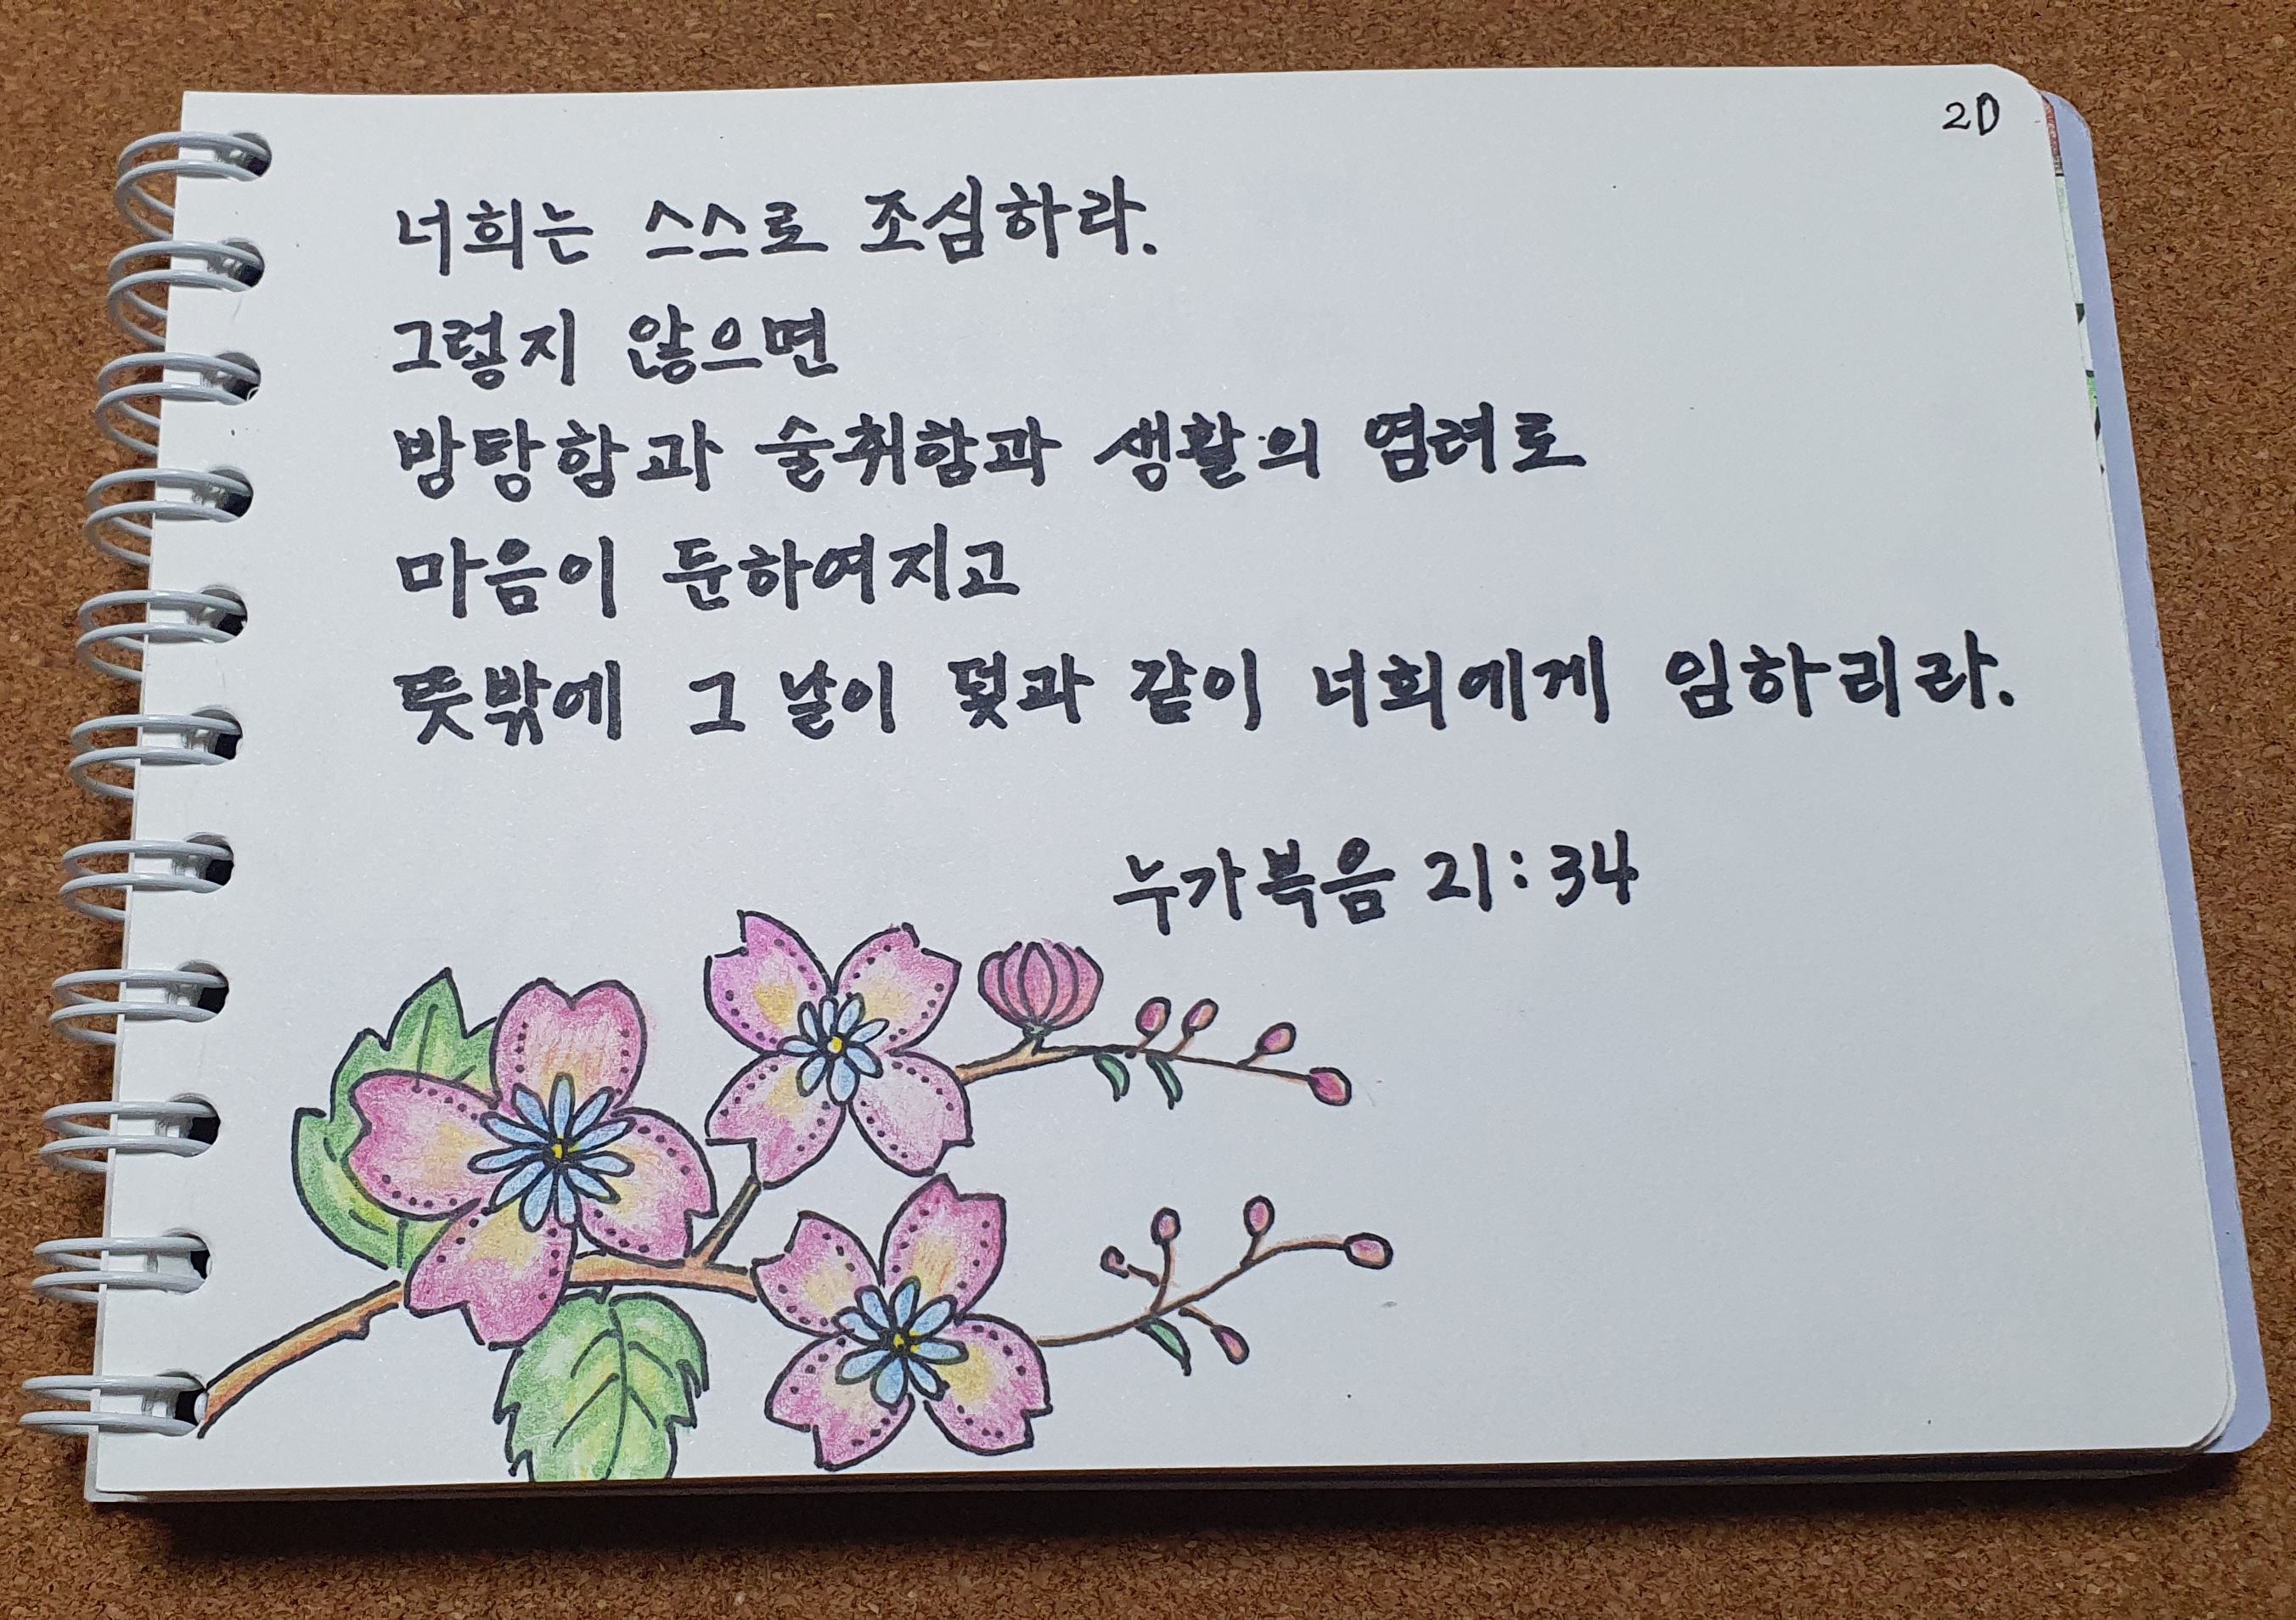 20
너희는 스스로 조심하라.
그렇지 않으면
방탕함과 술취함과 생활의 염려로
마음이 둔하여지고
뜻밖에 그 날이 덫과 같이 너희에게 임하리라.
누가복음 21:34